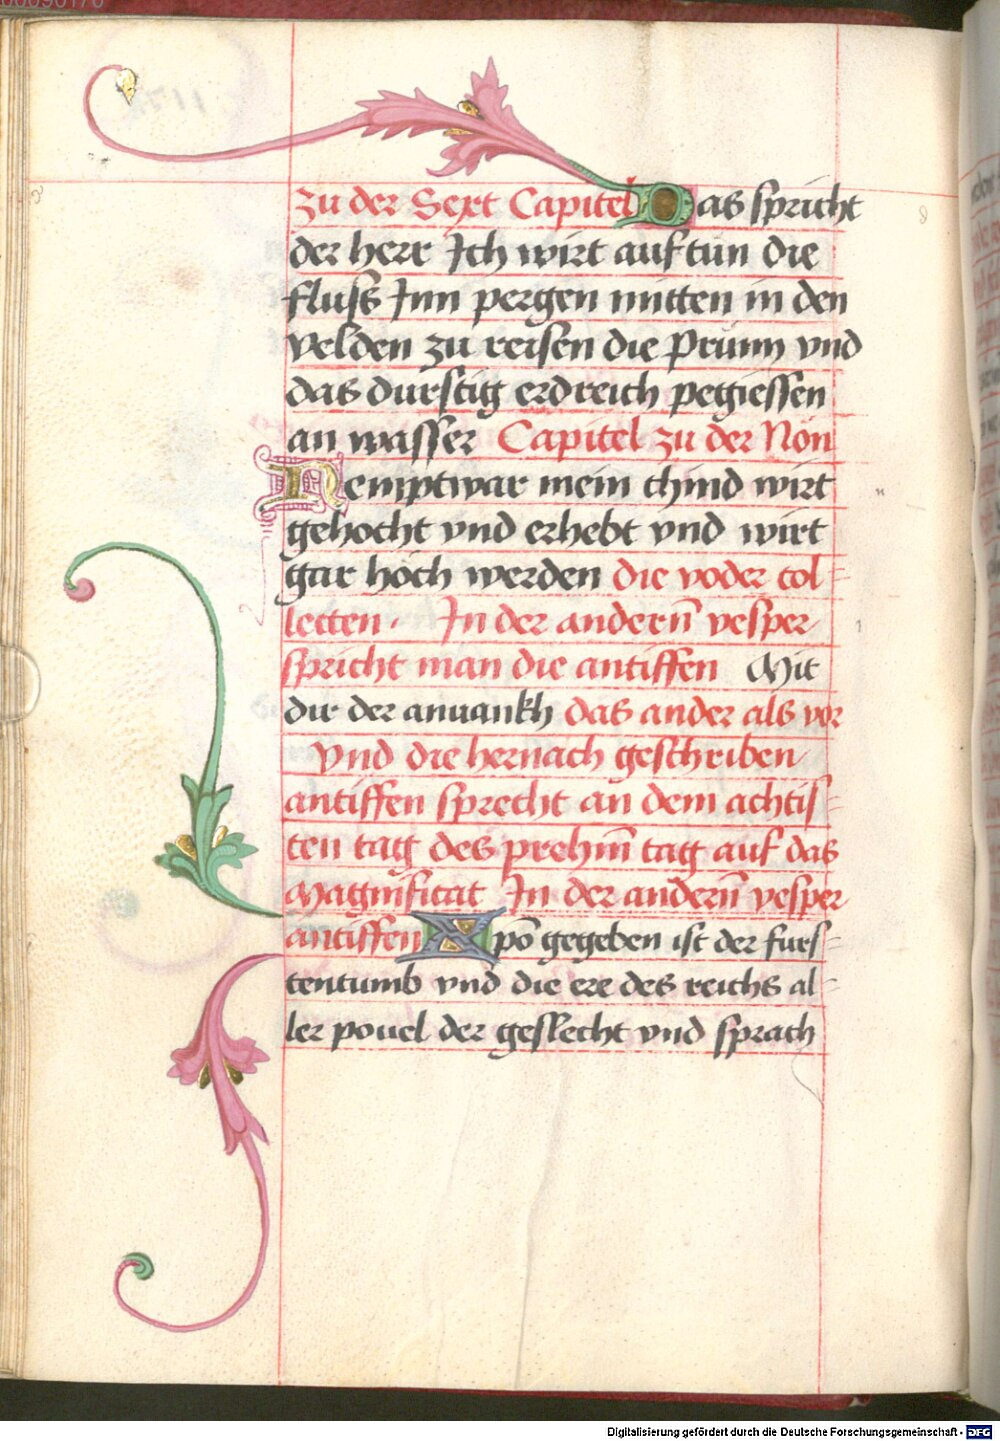 zu der Sext Capitel Das spricht
der herr Ich wirt auftün die
fluss Inn pergen mitten in den
velden zu reisen die Prünn vnd
das durstig erdreich pegiessen
an wasser Capitel zu der Nön
Nemptwar mein chind wirt
gehöcht vnd erhebt vnd wirt
gar höch werden die voder col=
lecten. In der andern̄ vesper
spricht man die antiffen Mit
dir der anuankh das ander als vor
Vnd die hernach geschriben
antiffen sprecht an dem achtis=
ten tag des prehm̄ tag auf das
Magnificat In der andern̄ vesper
antiffen Xpō gegeben ist der furs=
tentumb vnd die ere des reichs al=
ler pouel der geslecht vnd sprach
Digitalisierung gefördert durch die Deutsche Forschungsgemeinschaft - DFG